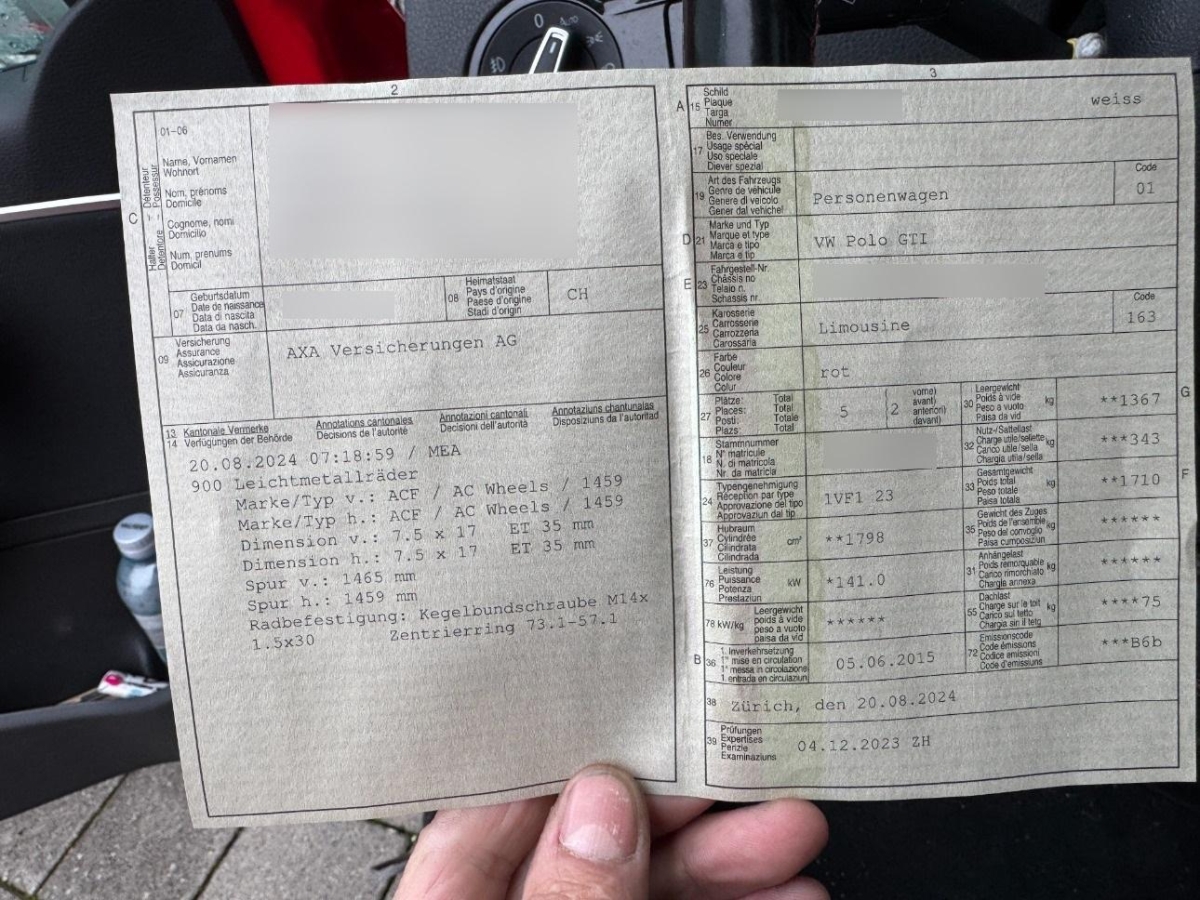 0
2
C
Halter
Détenteur
Detentore
Possessur
01-06
Name, Vornamen
Wohnort
Nom, prénoms
Domicile
Cognome, nomi
Domicilio
Num, prenums
Domicil
07
Geburtsdatum
Date de naissance
Data di nascita
Data da nasch.
08
Heimatstaat
Pays d'origine
Paese d'origine
Stadi d'origin
CH
09
Versicherung
Assurance
Assicurazione
Assicuranza
AXA Versicherungen AG
13 Kantonale Vermerke Annotations cantonales Annotazioni cantonali Annotaziuns chantunalas
14 Verfügungen der Behörde Décisions de l'autorité Decisioni dell'autorità Disposiziuns da l'autoritad
20.08.2024 07:18:59 / MEA
900 Leichtmetallräder
Marke/Typ v.: ACF / AC Wheels / 1459
Marke/Typ h.: ACF / AC Wheels / 1459
Dimension v.: 7.5 x 17 ET 35 mm
Dimension h.: 7.5 x 17 ET 35 mm
Spur v.: 1465 mm
Spur h.: 1459 mm
Radbefestigung: Kegelbundschraube M14x
1.5x30 Zentrierring 73.1-57.1
3
A
15
Schild
Plaque
Targa
Numer
weiss
17
Bes. Verwendung
Usage spécial
Uso speciale
Diever spezial
19
Art des Fahrzeugs
Genre de véhicule
Genere di veicolo
Gener dal vehichel
Personenwagen
Code
01
D
21
Marke und Typ
Marque et type
Marca e tipo
Marca e tip
VW Polo GTI
E
23
Fahrgestell-Nr.
Châssis no
Telaio n.
Schassis nr.
25
Karosserie
Carrosserie
Carrozzeria
Carossaria
Limousine
Code
163
26
Farbe
Couleur
Colore
Colur
rot
27
Plätze: Total
Places: Total
Posti: Totale
Plazs: Total
5
(2
vorne)
avant)
anteriori)
davant)
30
Leergewicht
Poids à vide
Peso a vuoto
Paisa da vid
kg
**1367
G
18
Stammnummer
N° matricule
N. di matricola
Nr. da matricla
32
Nutz-/Sattellast
Charge utile/sellette
Carico utile/sella
Chargia utila/sella
kg
***343
24
Typengenehmigung
Réception par type
Approvazione del tipo
Approvaziun dal tip
1VF1 23
33
Gesamtgewicht
Poids total
Peso totale
Paisa totala
kg
**1710
F
37
Hubraum
Cylindrée
Cilindrata
Cilindrada
cm³
**1798
35
Gewicht des Zuges
Poids de l'ensemble
Peso del convoglio
Paisa cumposiziun
kg
******
76
Leistung
Puissance
Potenza
Prestaziun
kW
*141.0
31
Anhängelast
Poids remorquable
Carico rimorchiato
Chargia annexa
kg
******
78 kW/kg
Leergewicht
poids à vide
peso a vuoto
paisa da vid
******
55
Dachlast
Charge sur le toit
Carico sul tetto
Chargia sin il tetg
kg
****75
B
36
1. Inverkehrsetzung
1re mise en circulation
1a messa in circolazione
1. entrada en circulaziun
05.06.2015
72
Emissionscode
Code émissions
Codice emissioni
Code d'emissiuns
***B6b
38
Zürich, den 20.08.2024
39
Prüfungen
Expertises
Perizie
Examinaziuns
04.12.2023 ZH